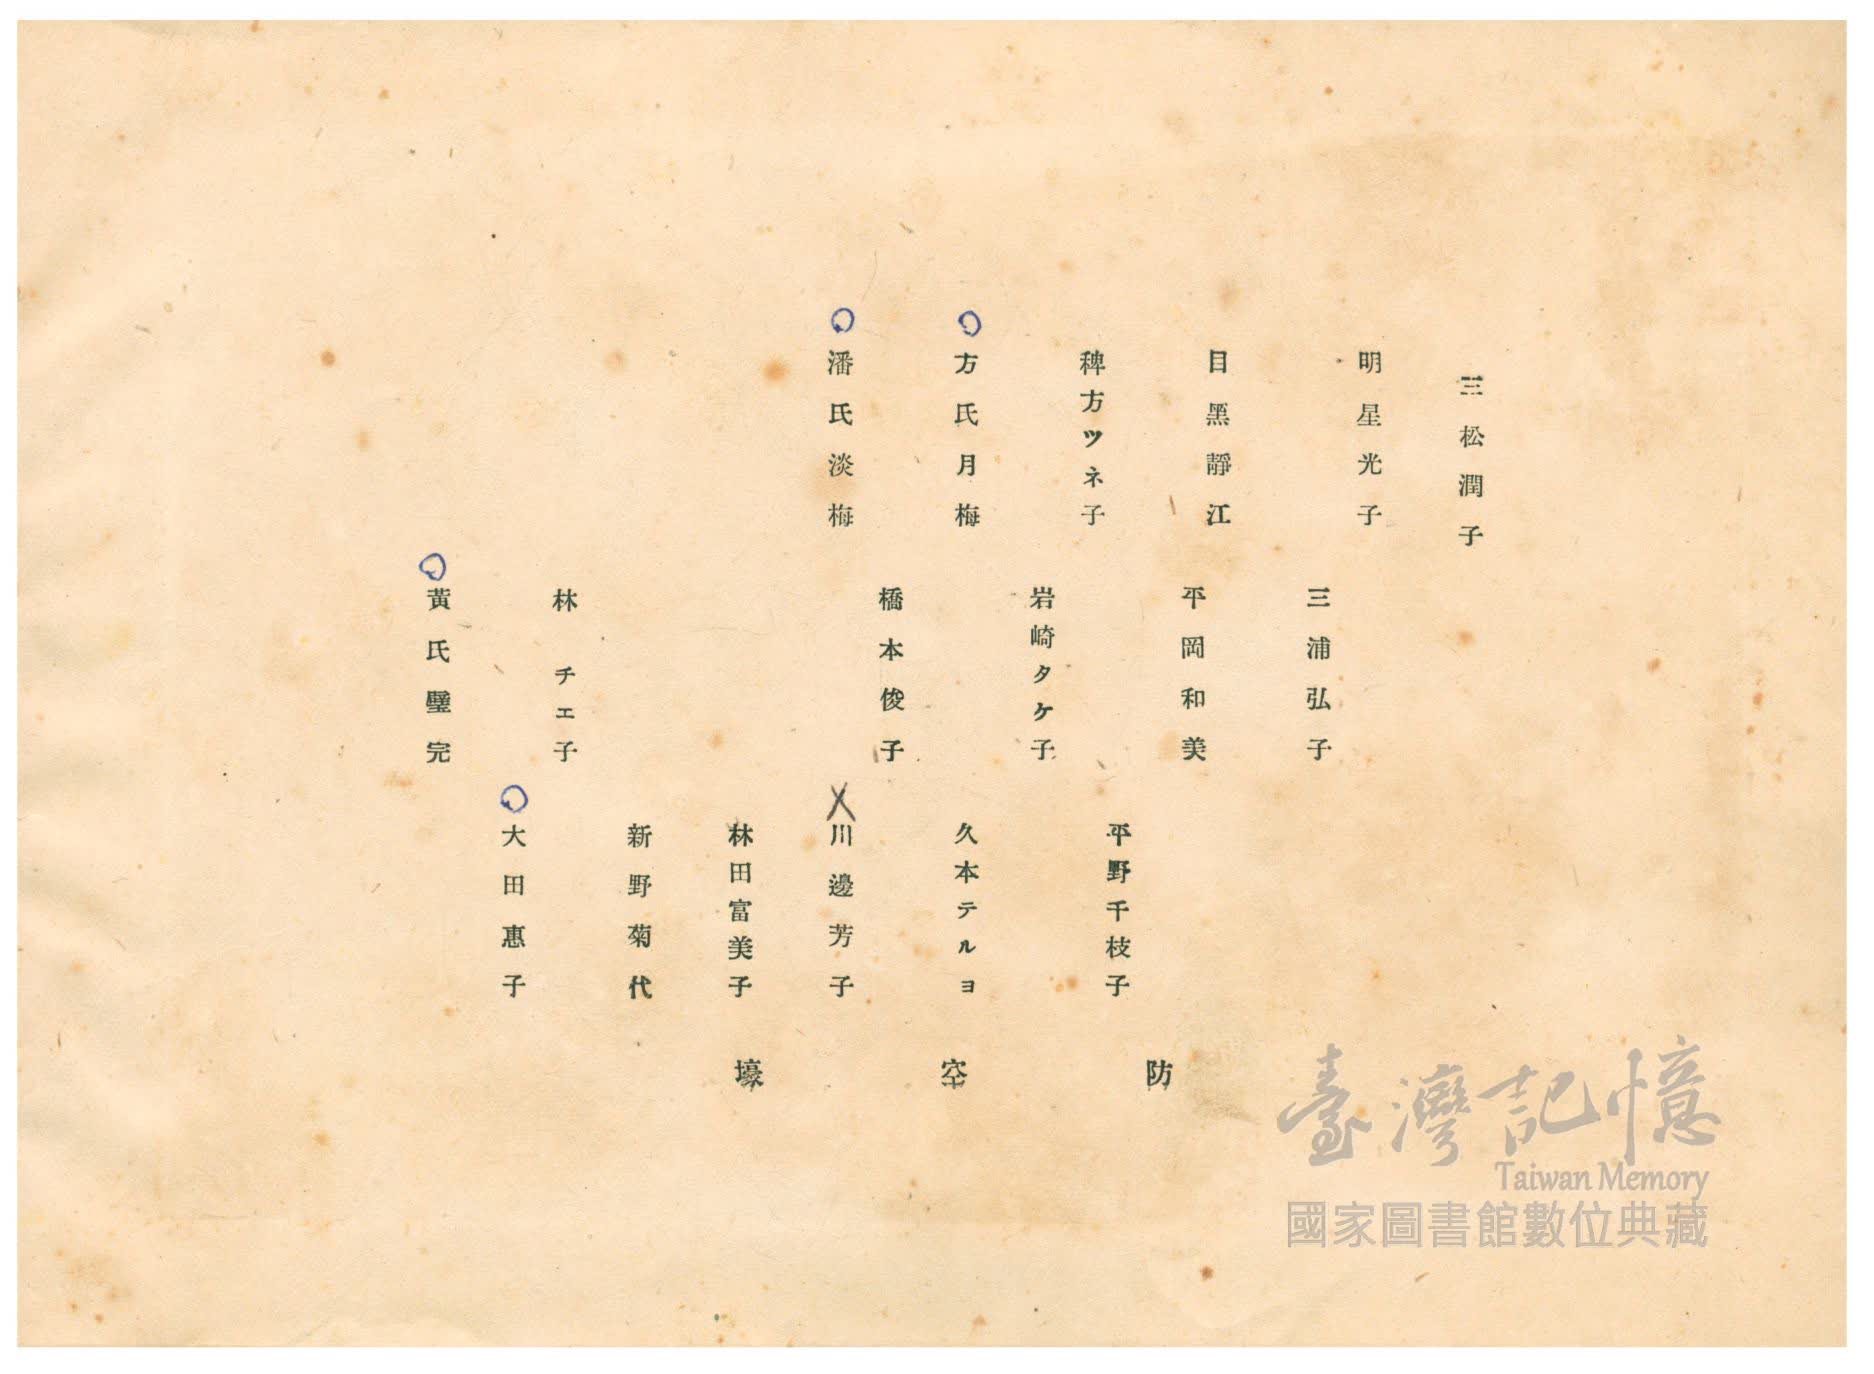 三松潤子
明星光子
目黑靜江
稗方ツネ子
方氏月梅
潘氏淡梅
三浦弘子
平岡和美
岩崎タケ子
橋本俊子
林チエ子
黃氏璧完
平野千枝子
久本テルヨ
川邊芳子
林田富美子
新野菊代
大田惠子
防空壕
臺灣記憶
Taiwan Memory
國家圖書館數位典藏